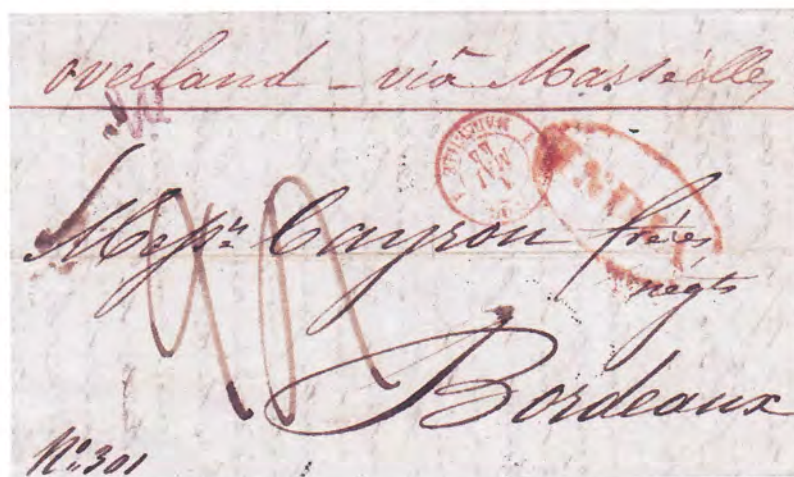 overland – viâ Marseilles
Messrs Cayron frères
négts
Bordeaux
No. 301